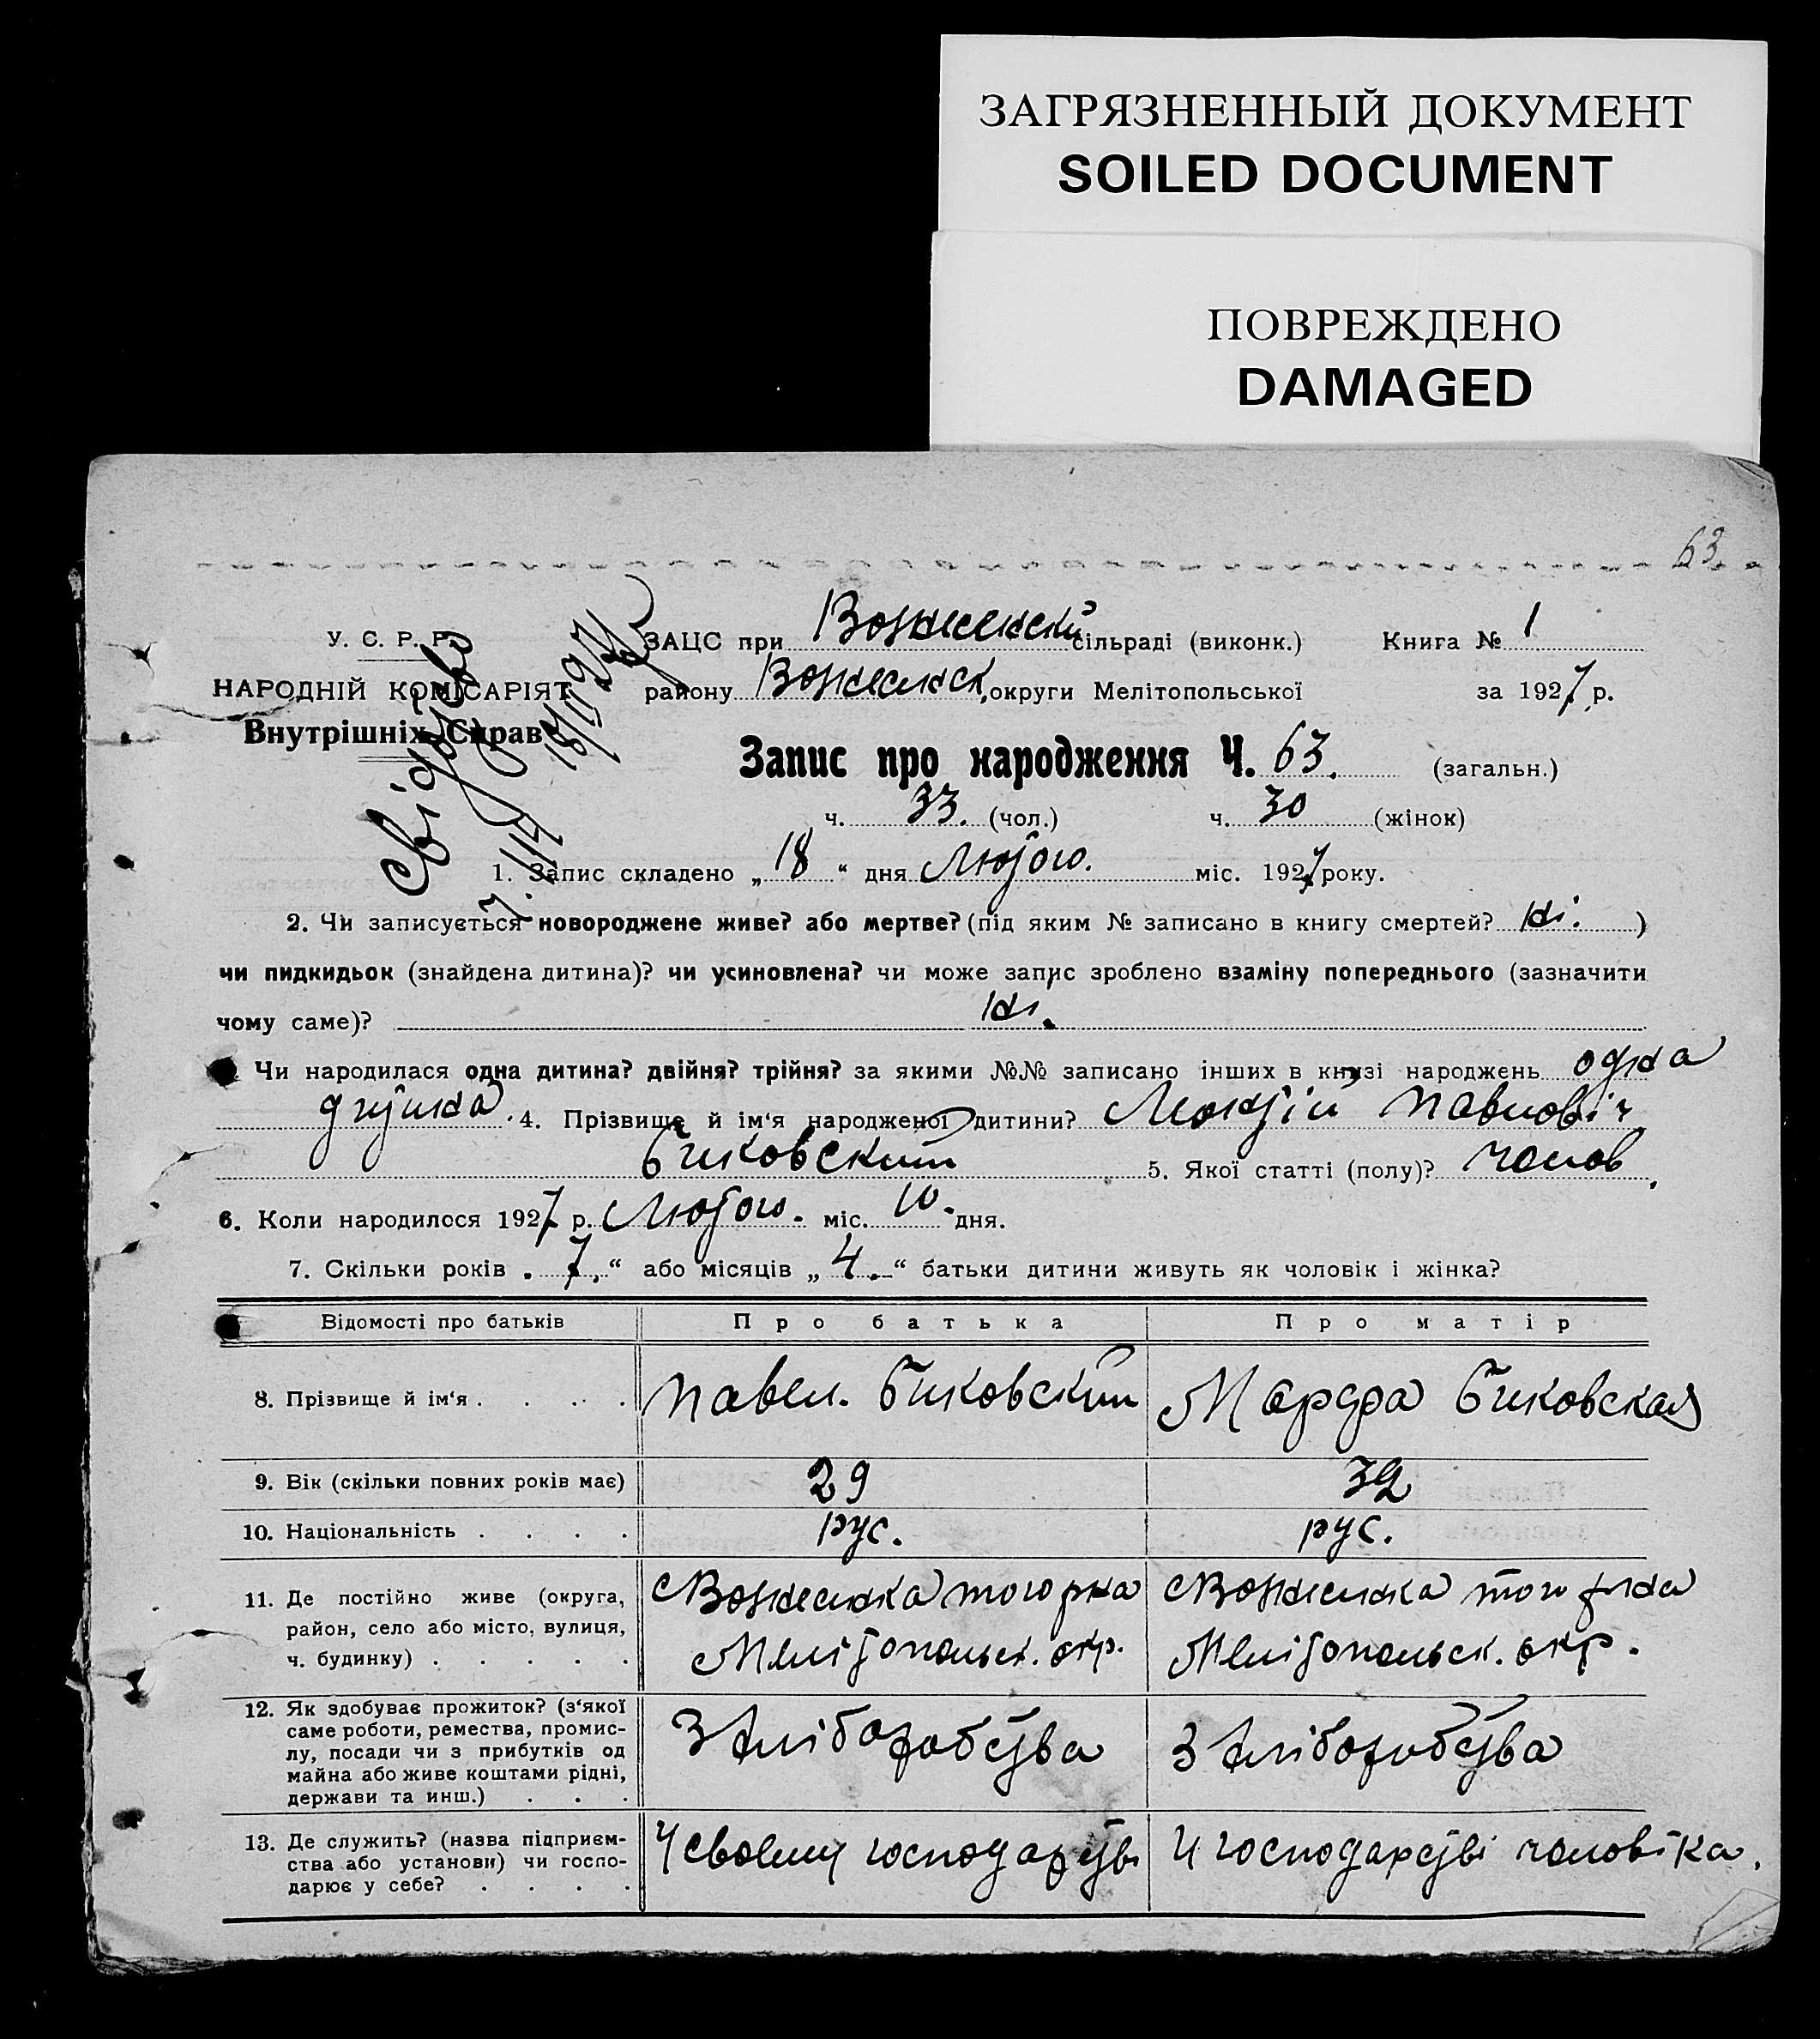 ЗАГРЯЗНЕННЫЙ ДОКУМЕНТ
SOILED DOCUMENT
ПОВРЕЖДЕНО
DAMAGED
63.
У. С. Р. Р.
НАРОДНІЙ КОМІСАРІЯТ
Внутрішніх Справ
ЗАЦС при Вознесенскій сільраді (виконк.) Книга № 1
району Вознесенск. округи Мелітопольської за 1927 р.
Запис про народження Ч. 63. (загальн.)
ч. 33. (чол.) ч. 30 (жінок)
1. Запис складено „ 18 “ дня Лютого. міс. 1927 року.
2. Чи записується новороджене живе? або мертве? (під яким № записано в книгу смертей? Ні. )
чи пидкидьок (знайдена дитина)? чи усиновлена? чи може запис зроблено взаміну попереднього (зазначити
чому саме)? Ні.
Чи народилася одна дитина? двійня? трійня? за якими №№ записано інших в книзі народжень одна
4. Прізвище й ім‘я народженої дитини? Павловіч
Биковский 5. Якої статті (полу)? чолов.
6. Коли народилося 1927 р. Лютого. міс. 10. дня.
7. Скільки років „ 7. “ або місяців „ 4. “ батьки дитини живуть як чоловік і жінка?
Відомості про батьків Про батька Про матір
8. Прізвище й ім‘я . . . . . Павел. Биковский Марфа Биковская
9. Вік (скільки повних років має) 29 32
10. Національність . . . . рус. рус.
11. Де постійно живе (округа, Вознесенка того рна Вознесенка того рна
район, село або місто, вулиця, Мелітопольск. окр. Мелітопольск. окр.
ч. будинку) . . . . .
12. Як здобуває прожиток? (з‘якої З хліборобства З хліборобства
саме роботи, ремества, промис-
лу, посади чи з прибутків од
майна або живе коштами рідні,
держави та инш.) . . .
13. Де служить? (назва підприєм- У своему господарстві У господарстві чоловіка.
ства або установи) чи госпо-
дарює у себе? . . . .